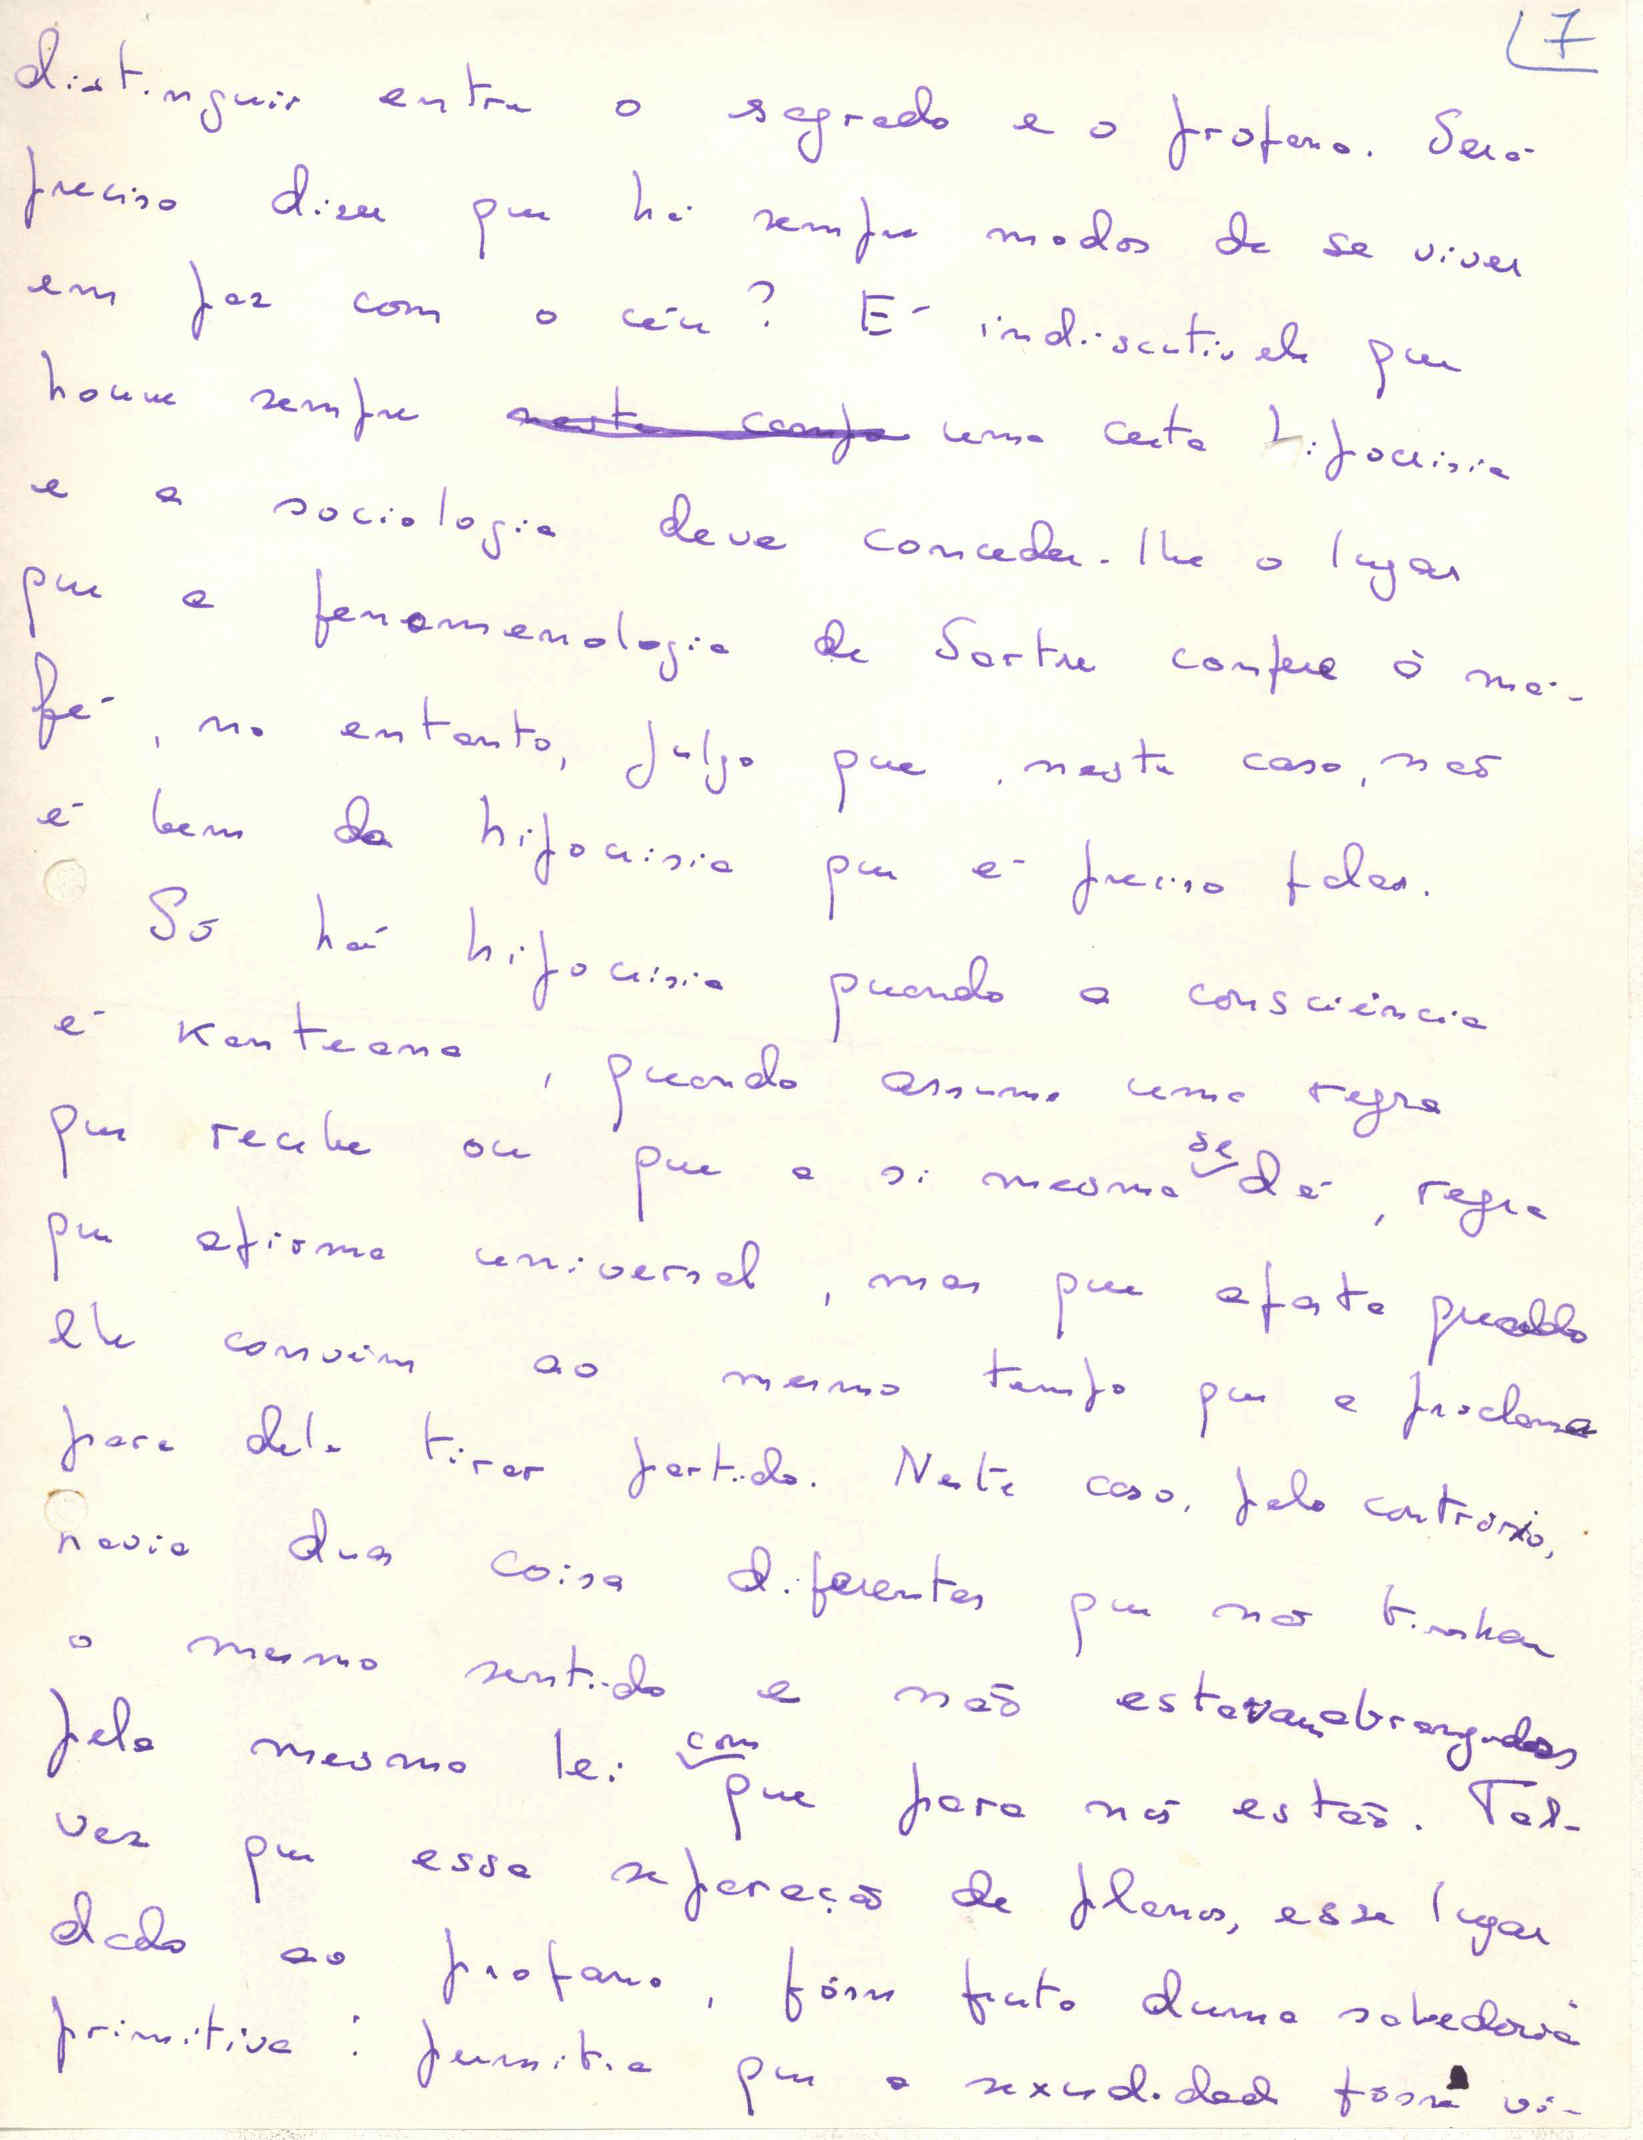 7
distinguir entre o sagrado e o profano. Será
preciso dizer que há sempre modos de se viver
em paz com o céu? É indiscutível que
houve sempre neste campo uma certa hipocrisia
e a sociologia deve conceder-lhe o lugar
que a fenomenologia de Sartre confere à má-
fé, no entanto, julgo que, neste caso, não
é bem da hipocrisia que é preciso falar.
Só há hipocrisia quando a consciência
é kanteana, quando assume uma regra
que recebe ou que a si mesma se dá, regra
que afirma universal, mas que afasta quando
lhe convém ao mesmo tempo que a proclama
para dela tirar partido. Neste caso, pelo contrário,
havia duas coisa diferentes que não tinham
o mesmo sentido e não estavam abrangidas
pela mesma lei com que para nós estão. Tal-
vez que essa separação de planos, esse lugar
dado ao profano, fôsse fruto duma sabedoria
primitiva: permitia que a sexualidade fôsse vi-